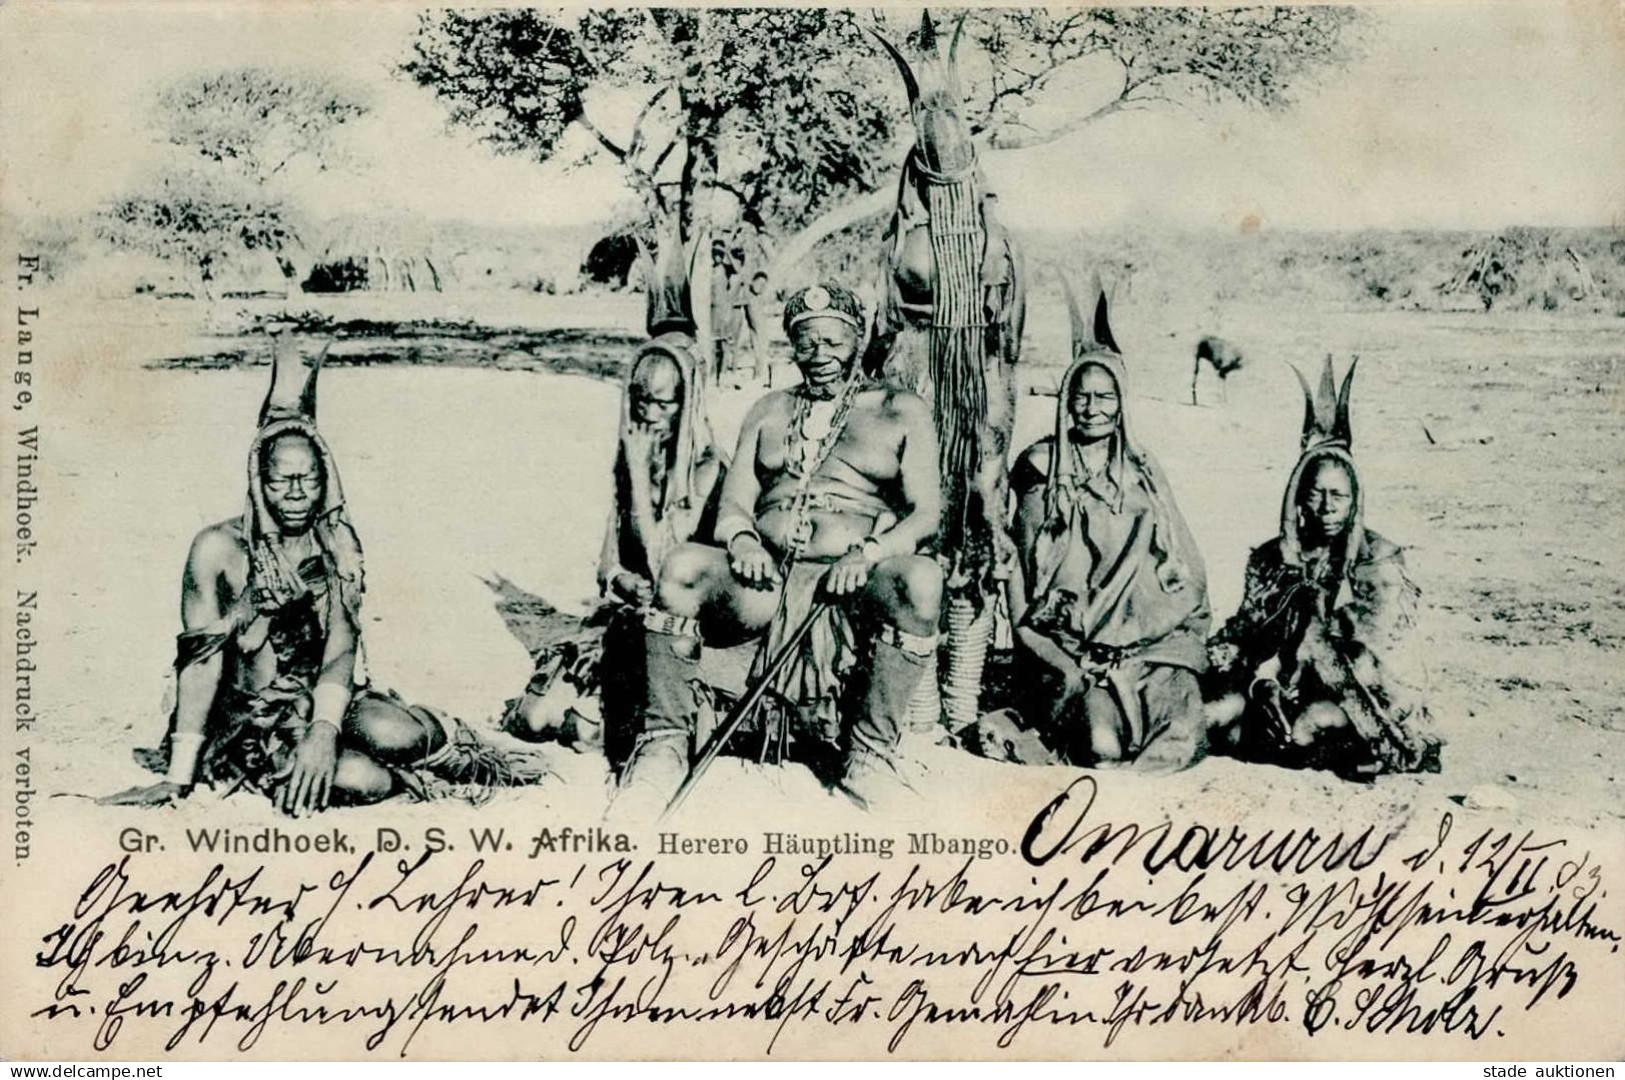 Fr. Lange, Windhoek. Nachdruck verboten.
Gr. Windhoek, D. S. W. Afrika. Herero Häuptling Mbango.
Omaruru d. 12/II. 03.
Geehrter H. Lehrer! Ihren l. Brf. habe ich bei best. Wohlsein erhalten,
Ich bin z. Übernahme d. Polz. Geschäfte nach hier versetzt. Herzl. Gruß
u. Empfehlung sendet Ihnen nebst Fr. Gemahlin Ihr dankb. C. Scholz.
delcampe.net
stade auktionen